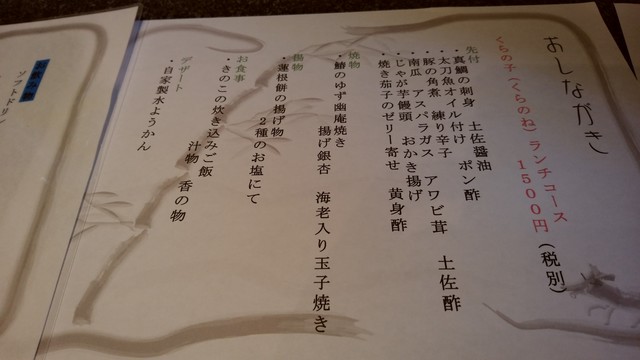 おしながき
くらの子(くらのね)ランチコース
1500円(税別)
先付
・真鯛の刺身 土佐醤油 ポン酢
・太刀魚オイル付け アワビ茸 土佐酢
・豚の角煮 練り辛子
・南瓜 アスパラガス おかき揚げ
・じゃが芋饅頭
・焼き茄子のゼリー寄せ 黄身酢
焼物
・鰆のゆず幽庵焼き
揚げ銀杏 海老入り玉子焼き
揚物
・蓮根餅の揚げ物
2種のお塩にて
お食事
・きのこの炊き込みご飯
汁物 香の物
デザート
・自家製水ようかん
ソフトドリン